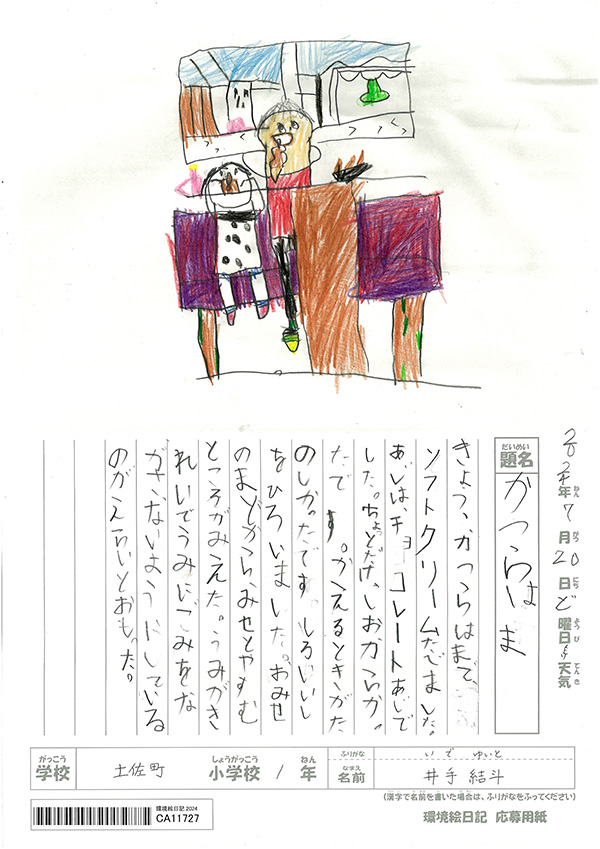 2024年7月20日ど曜日 天気
ねん がつ にち ようび てんき
だいめい
題名 かつらはま
きょう、かつらはまで、
ソフトクリームたべました。
あじは、チョコレートあじで
した。ちょっとだけ、しおからかっ
たです。かえるときがた
のしかったです しろいいし
をひろいました。おみせ
のまどからみせとやすむ
ところがみえた。うみがき
れいでうみにごみをな
がさないようにしている
のがえらいとおもった。
がっこう しょうがっこう ねん
学校 土佐町 小学校 1年
ふりがな いで ゆいと
なまえ
名前 井手 結斗
(漢字で名前を書いた場合は、ふりがなをふってください)
環境絵日記 2024
CA11727
環境絵日記 応募用紙